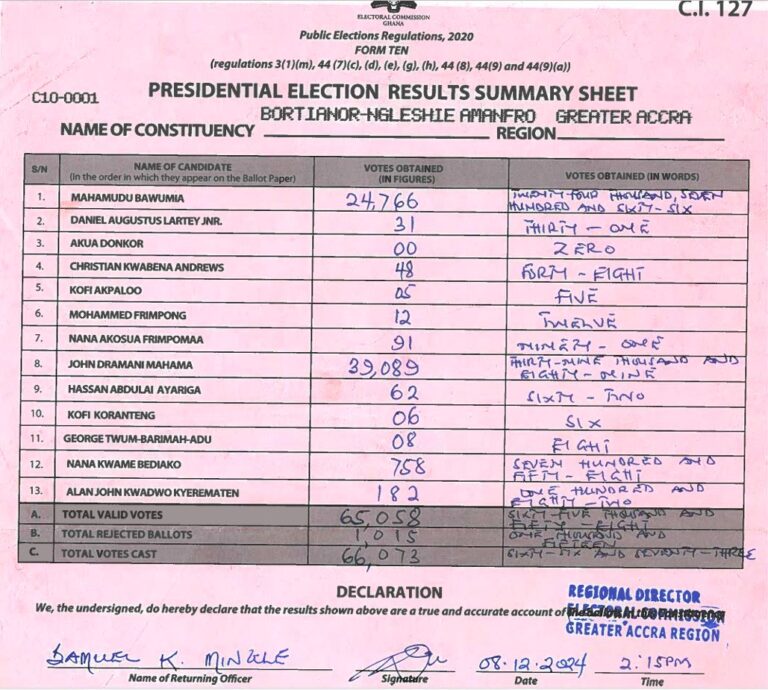 ELECTORAL COMMISSION
GHANA
C.I. 127
Public Elections Regulations, 2020
FORM TEN
(regulations 3(1)(m), 44 (7)(c), (d), (e), (g), (h), 44 (8), 44(9) and 44(9)(a))
C10-0001 PRESIDENTIAL ELECTION RESULTS SUMMARY SHEET
BORTIANOR-NGLESHIE AMANFRO GREATER ACCRA
NAME OF CONSTITUENCY REGION
S/N NAME OF CANDIDATE (In the order in which they appear on the Ballot Paper) VOTES OBTAINED (IN FIGURES) VOTES OBTAINED (IN WORDS)
1. MAHAMUDU BAWUMIA 24,766 TWENTY-FOUR THOUSAND, SEVEN HUNDRED AND SIXTY-SIX
2. DANIEL AUGUSTUS LARTEY JNR. 31 THIRTY-ONE
3. AKUA DONKOR 00 ZERO
4. CHRISTIAN KWABENA ANDREWS 48 FORTY-EIGHT
5. KOFI AKPALOO 05 FIVE
6. MOHAMMED FRIMPONG 12 TWELVE
7. NANA AKOSUA FRIMPOMAA 91 NINETY-ONE
8. JOHN DRAMANI MAHAMA 39,089 THIRTY-NINE THOUSAND AND EIGHTY-NINE
9. HASSAN ABDULAI AYARIGA 62 SIXTY-TWO
10. KOFI KORANTENG 06 SIX
11. GEORGE TWUM-BARIMAH-ADU 08 EIGHT
12. NANA KWAME BEDIAKO 758 SEVEN HUNDRED AND FIFTY-EIGHT
13. ALAN JOHN KWADWO KYEREMATEN 182 ONE HUNDRED AND EIGHTY-TWO
A. TOTAL VALID VOTES 65,058 SIXTY-FIVE THOUSAND AND FIFTY-EIGHT
B. TOTAL REJECTED BALLOTS 1,015 ONE THOUSAND AND FIFTEEN
C. TOTAL VOTES CAST 66,073 SIXTY-SIX AND SEVENTY-THREE
DECLARATION
We, the undersigned, do hereby declare that the results shown above are a true and accurate account of
REGIONAL DIRECTOR
ELECTORAL COMMISSION
GREATER ACCRA REGION
SAMUEL K. MINGLE 08.12.2024 2:15PM
Name of Returning Officer Signature Date Time